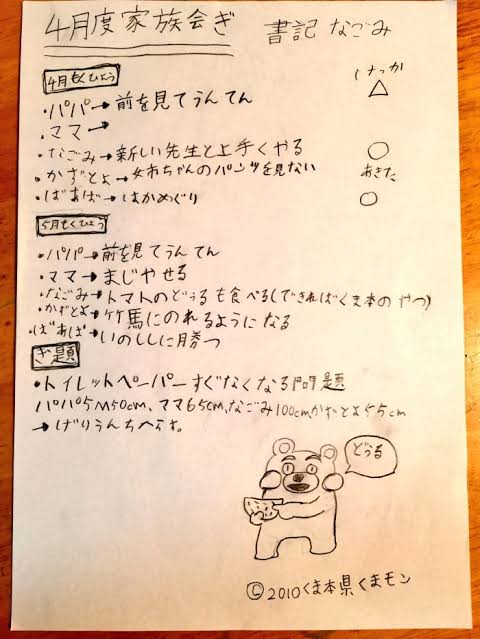 4月度家族会ぎ 書記 なごみ
4月もくひょう けっか
・パパ→前を見てうんてん △
・ママ→
・なごみ→新しい先生と上手くやる ○
・かずとよ→女お ちゃんのパンツを見ない あきた
・ばあば→はかめぐり ○
5月もくひょう
・パパ→前を見てうんてん
・ママ→まじやせる
・なごみ→トマトのどぅるも食べる(できればくま本のやつ)
・かずとよ→竹馬にのれるようになる
・ばあば→いのししに勝つ
ぎ題
・トイレットペーパーすぐなくなる問題
パパ5M50cm、ママ65cm、なごみ100cm、かずとよ55cm
→げりうんちへらす。
どぅる
©2010くま本県くまモン